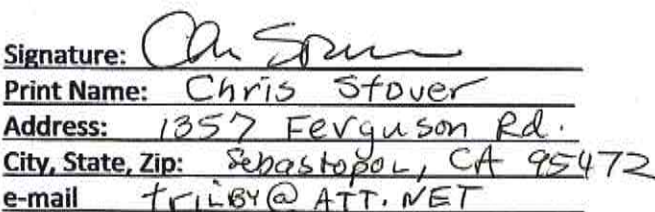 Signature:
Print Name: Chris Stover
Address: 1357 Ferguson Rd.
City, State, Zip: Sebastopol, CA 95472
e-mail trilby@ATT.NET